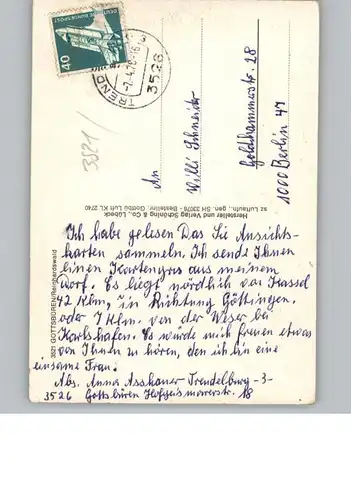 DEUTSCHE BUNDESPOST
40
3526
3521/
An
Willi Schneider
1000 Berlin 47
Hersteller und Verlag Schöning & Co., Lübeck
3521 GOTTSBÜREN/Reinhardswald
Ich habe gelesen Das Sie Ansichts-
karten sammeln. Ich sende Ihnen
einen Kartengrus aus meinem
Dorf. Es liegt nördlich von Kassel
42 Klm, in Richtung Göttingen.
oder 7 Klm. von der Weser bei
Karlshafen. Es würde mich freuen etwas
von Ihnen zu hören, den ich bin eine
einsame Frau.
Abs. Anna Asshauer Trendelburg -3-
3526 Gottsbüren 18